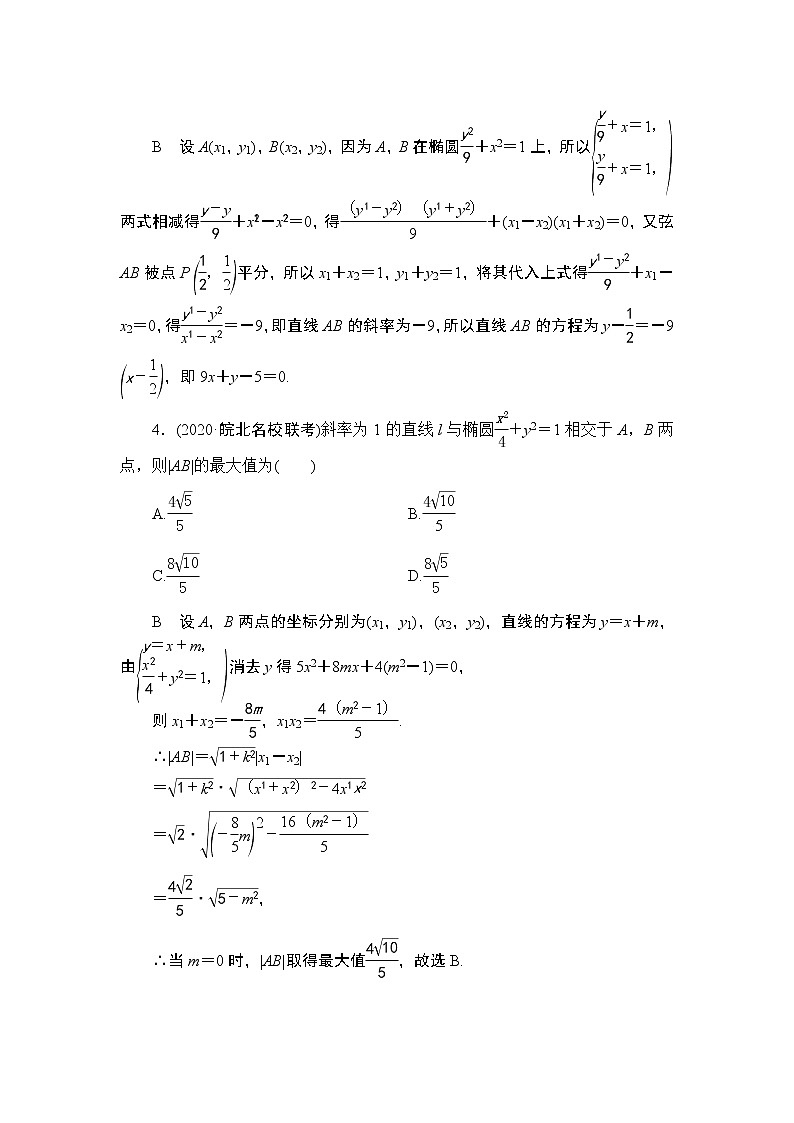 B 设 A(x₁, y₁), B(x₂, y₂), 因为 A, B 在椭圆 y²/9+x²=1 上, 所以{y/9+x=1, y/9+x=1,)
两式相减得 (y-y)/9+x²-x²=0, 得 (y1-y2)(y1+y2)/9+(x₁-x₂)(x₁+x₂)=0, 又弦
AB 被点 P(1/2, 1/2)平分, 所以 x₁+x₂=1, y₁+y₂=1, 将其代入上式得 (y1-y2)/9+x₁-
x₂=0, 得 (y1-y2)/(x1-x2)=-9, 即直线 AB 的斜率为-9, 所以直线 AB 的方程为 y-1/2=-9
(x-1/2), 即 9x+y-5=0.
4. (2020·皖北名校联考)斜率为 1 的直线 l 与椭圆 x²/4+y²=1 相交于 A, B 两
点, 则|AB|的最大值为( )
A. 4√5/5 B. 4√10/5
C. 8√10/5 D. 8√5/5
B 设 A, B 两点的坐标分别为(x₁, y₁), (x₂, y₂), 直线的方程为 y=x+m,
由(y=x+m, x²/4+y²=1,)消去 y 得 5x²+8mx+4(m²-1)=0,
则 x₁+x₂=-8m/5, x₁x₂=4(m²-1)/5.
∴|AB|=√(1+k²)|x₁-x₂|
=√(1+k²)·√((x1+x2)2-4x1x2)
=√2·√((-8/5m)2-16(m²-1)/5)
=4√2/5·√(5-m²),
∴当 m=0 时, |AB|取得最大值 4√10/5, 故选 B.